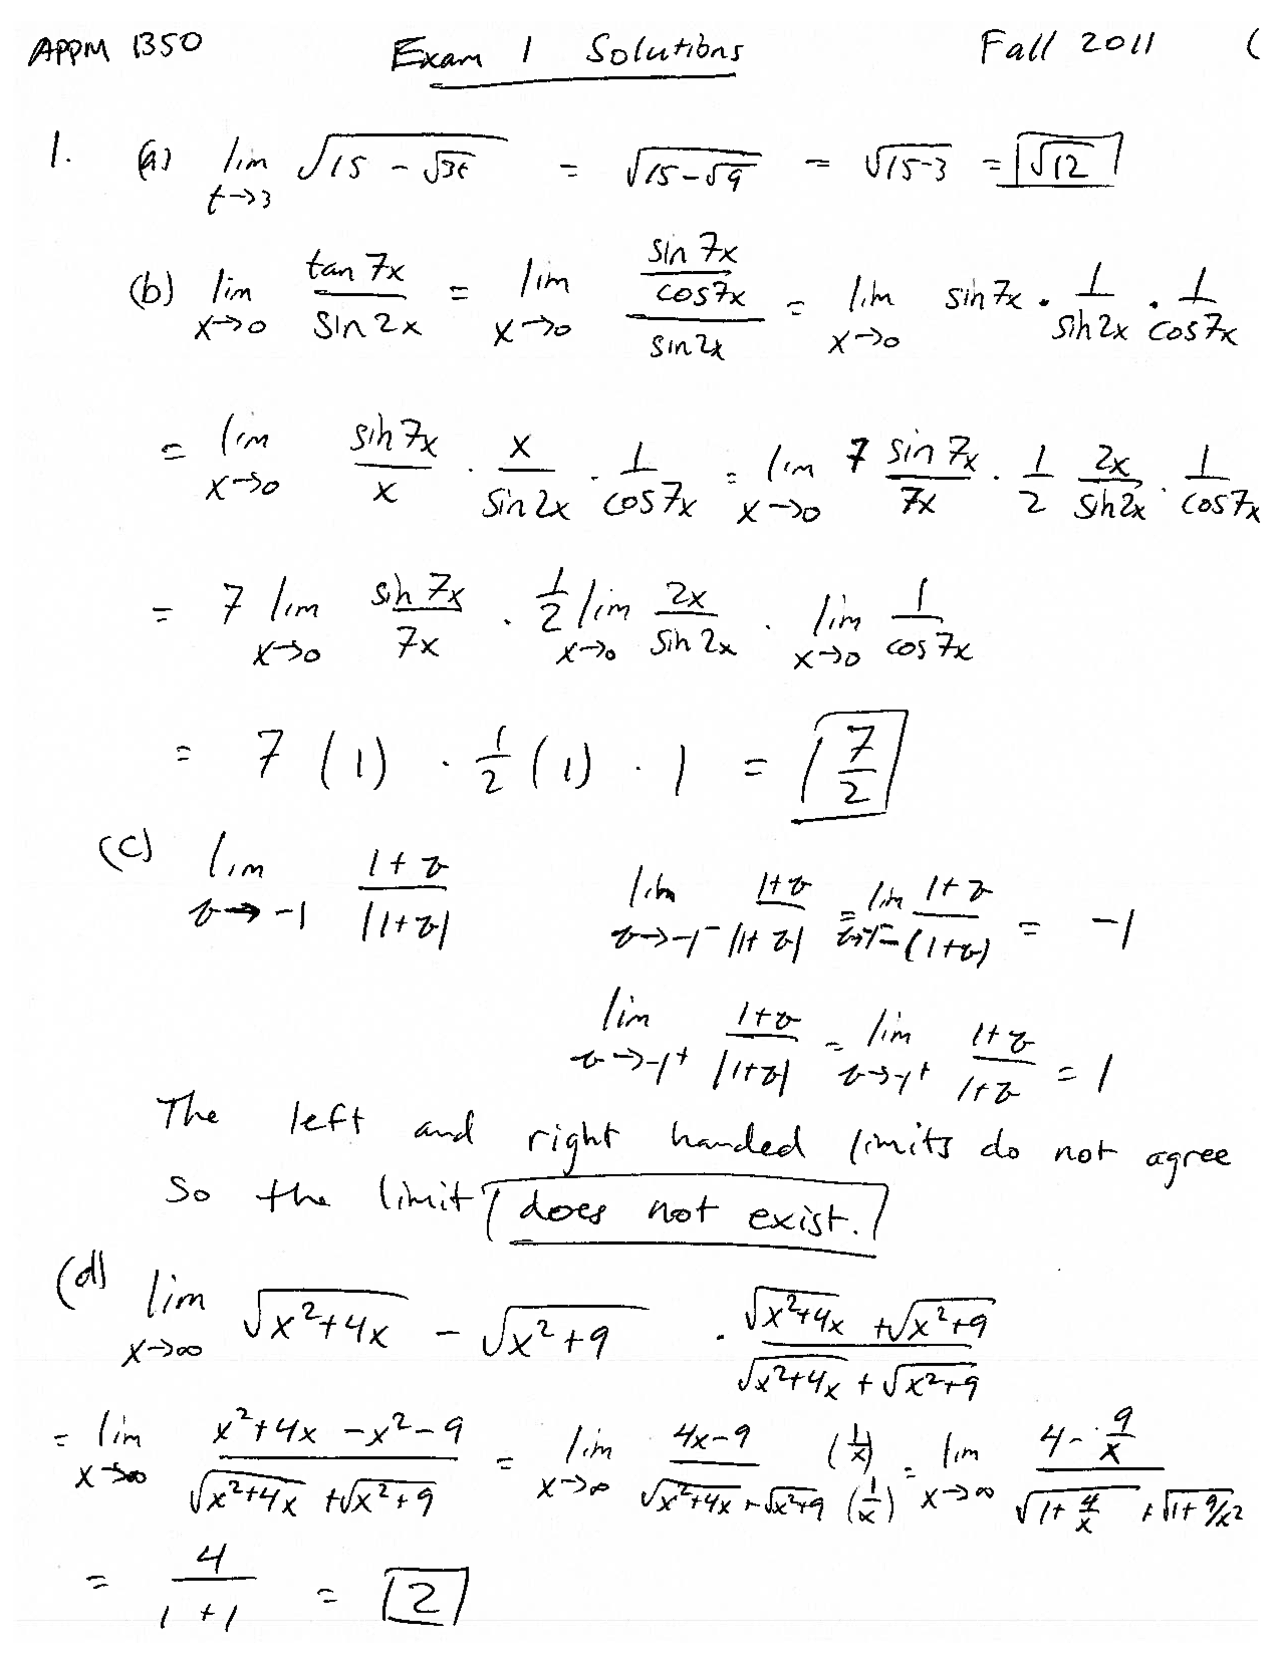 APPM 1350 Exam 1 Solutions Fall 2011 (
1. (a) lim t→3 √(15 - √3t) = √(15-√9) = √(15-3) = √12
(b) lim x→0 tan 7x / sin 2x = lim x→0 (sin 7x / cos7x) / sin2x = lim x→0 sin7x · 1/sin2x · 1/cos7x
= lim x→0 sin7x/x · x/sin2x · 1/cos7x = lim x→0 7 sin7x/7x · 1/2 2x/sin2x · 1/cos7x
= 7 lim x→0 sin 7x/7x · 1/2 lim x→0 2x/sin2x · lim x→0 1/cos7x
= 7 (1) · 1/2 (1) · 1 = 7/2
(c) lim z→-1 (1+z)/|1+z| lim z→-1⁻ (1+z)/|1+z| = lim z→-1⁻ (1+z)/-(1+z) = -1
lim z→-1⁺ (1+z)/|1+z| = lim z→-1⁺ (1+z)/(1+z) = 1
The left and right handed limits do not agree
So the limit does not exist.
(d) lim x→∞ √(x²+4x) - √(x²+9) · (√(x²+4x) + √(x²+9))/(√(x²+4x) + √(x²+9))
= lim x→∞ (x²+4x - x² - 9)/(√(x²+4x) + √(x²+9)) = lim x→∞ (4x-9)/(√(x²+4x) + √(x²+9)) (1/x)/(1/x) = lim x→∞ (4 - 9/x)/(√(1+4/x) + √(1+9/x²))
= 4/(1+1) = 2